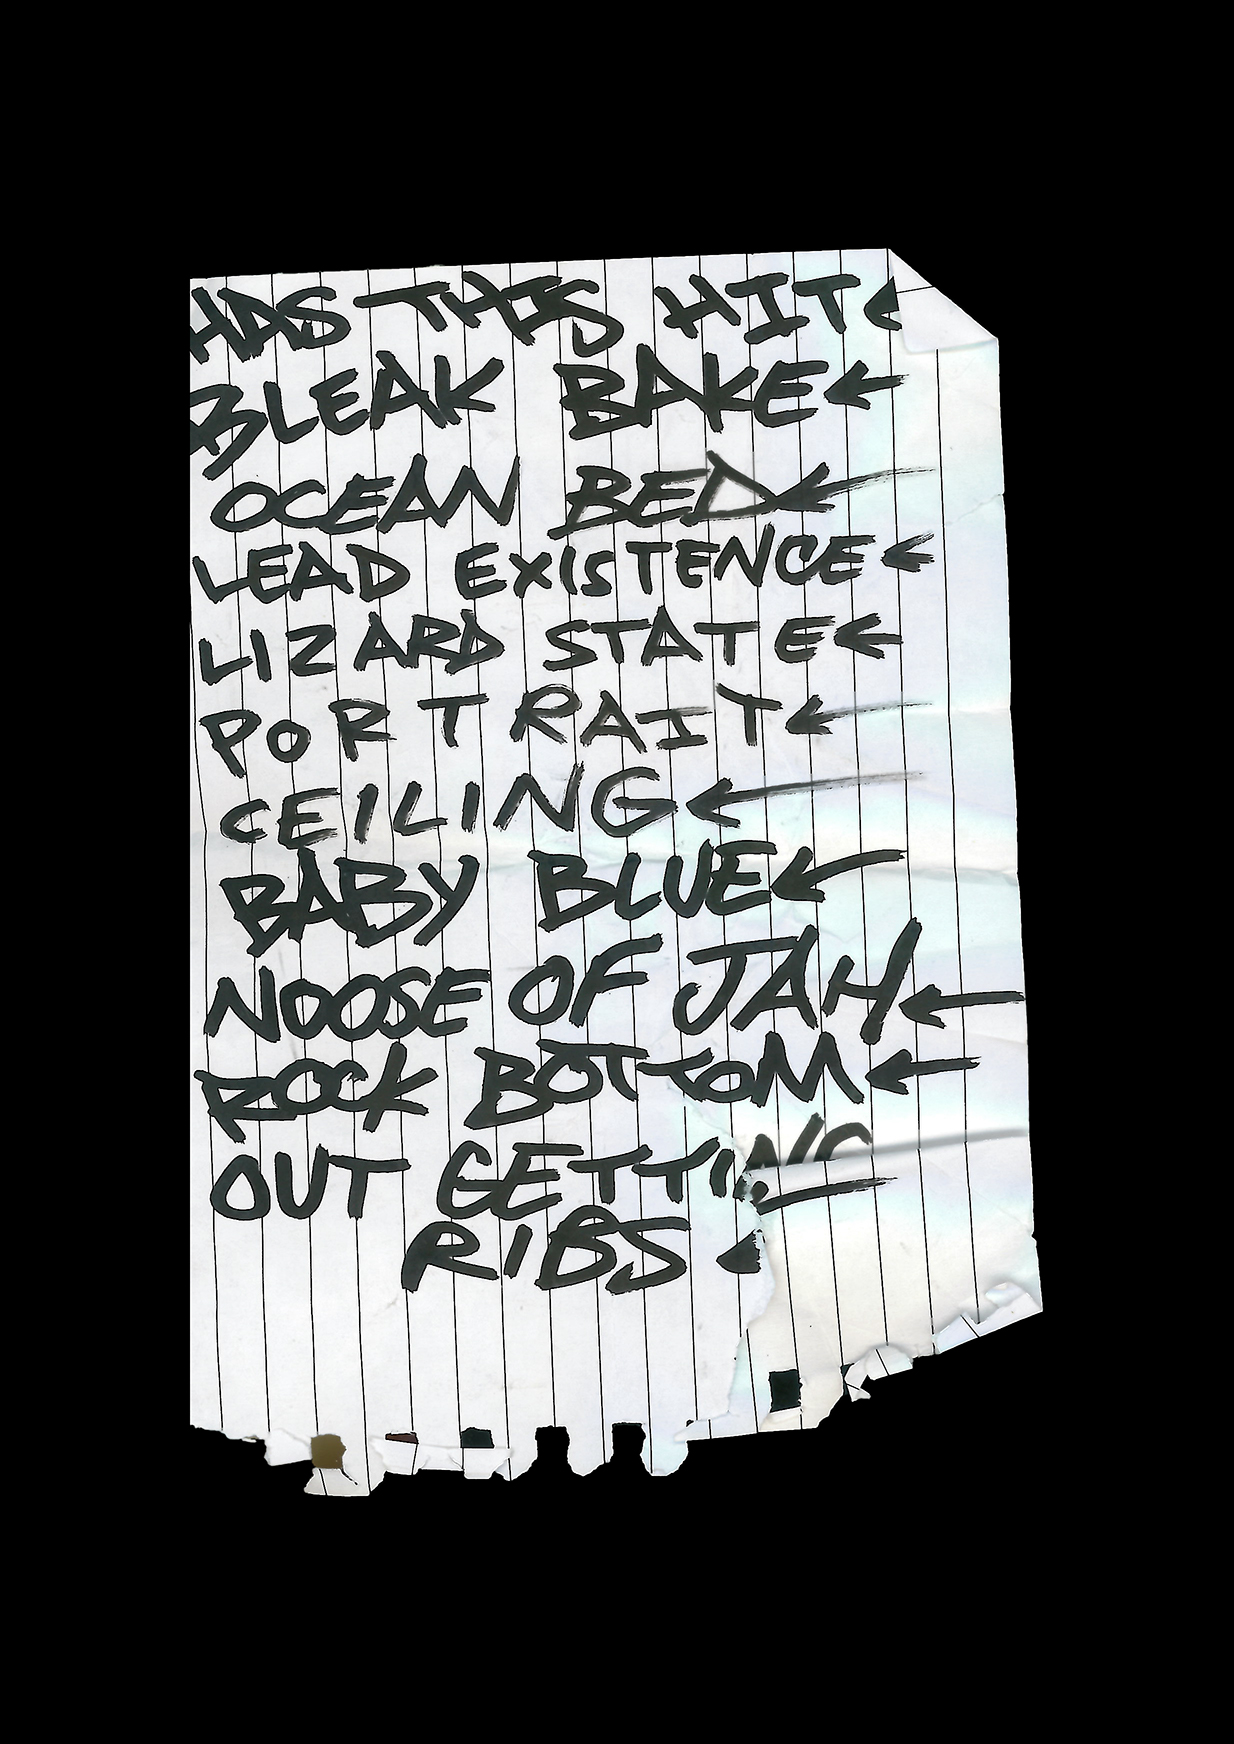 HAS THIS HIT←
BLEAK BAKE←
OCEAN BED←
LEAD EXISTENCE←
LIZARD STATE←
PORTRAIT←
CEILING←
BABY BLUE←
NOOSE OF JAH←
ROCK BOTTOM←
OUT GETTING
RIBS←